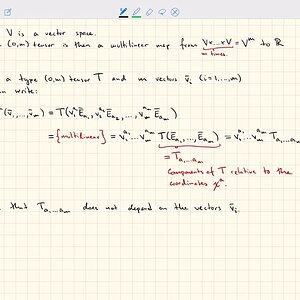 V is a vector space.
(0,m) tensor is then a multilinear map from V×...×V = Vᵐ to ℝ
m times.
a type (0,m) tensor T and m vectors v̄ᵢ (i=1,...,m)
n write:
T(v̄₁,...,v̄ₘ) = T(v₁^{a₁} Ē_{a₁}, v₂^{a₂} Ē_{a₂}, ..., vₘ^{aₘ} Ē_{aₘ})
= {multilinear} = v₁^{a₁}...vₘ^{aₘ} T(Ē_{a₁},...,Ē_{aₘ}) = v₁^{a₁}...vₘ^{aₘ} T_{a₁...aₘ}
= T_{a₁...aₘ}
components of T relative to the
coordinates xᵃ.
that T_{a₁...aₘ} does not depend on the vectors v̄ᵢ.